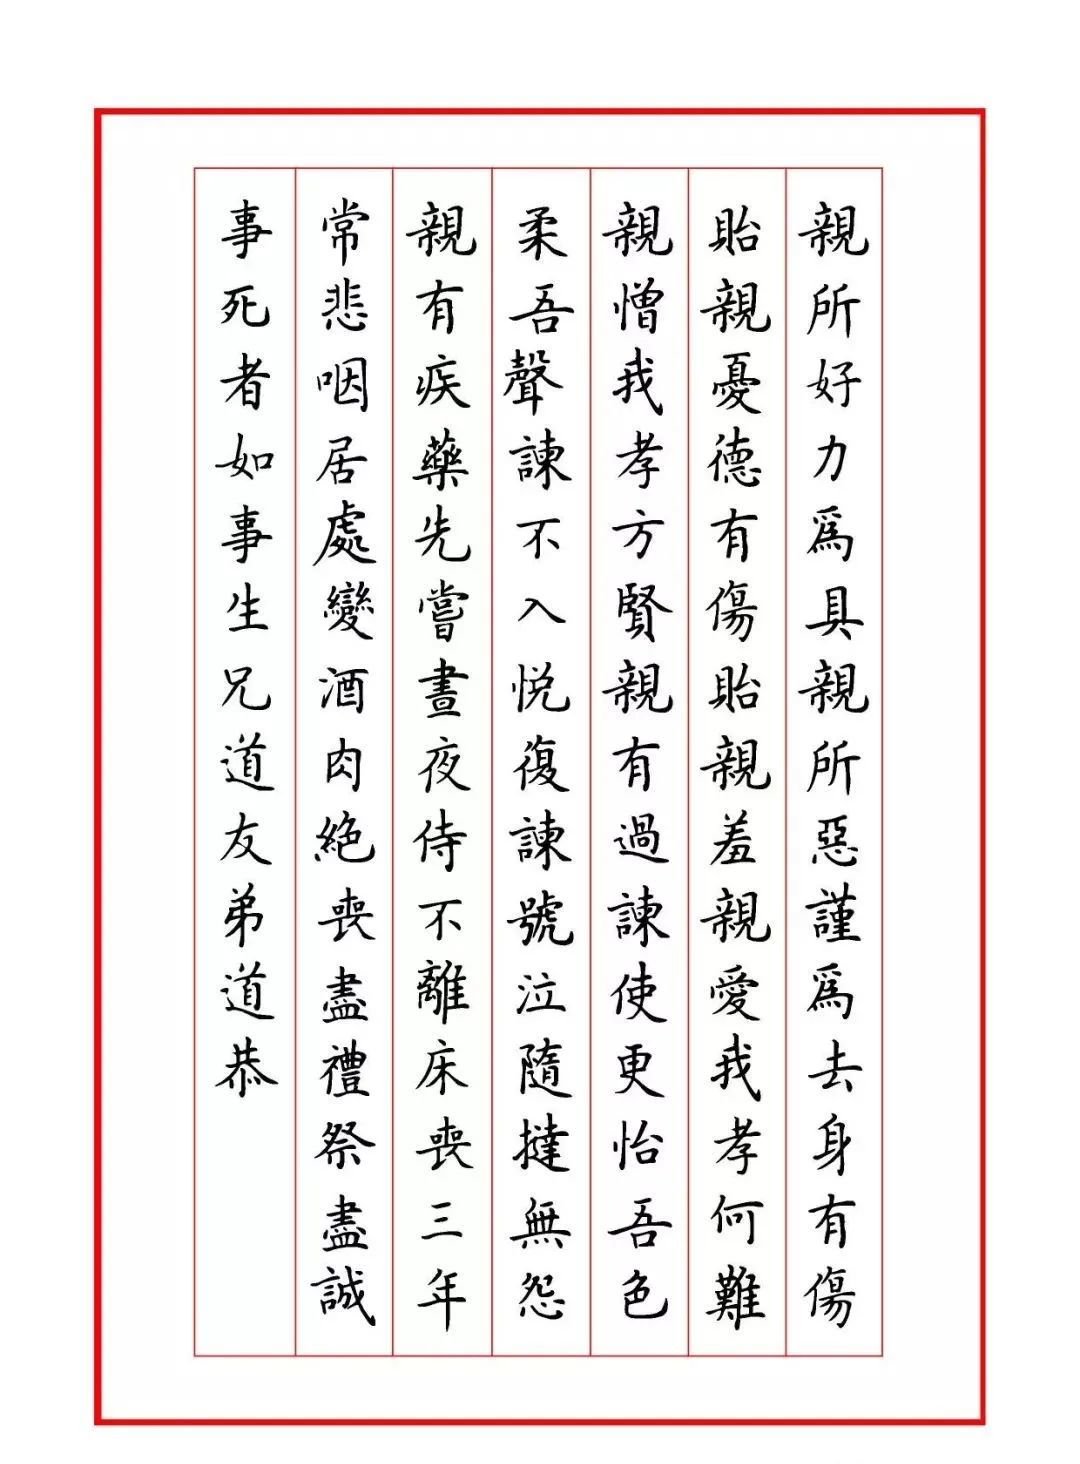 親所好力爲具親所惡謹爲去身有傷
貽親憂德有傷貽親羞親愛我孝何難
親憎我孝方賢親有過諫使更怡吾色
柔吾聲諫不入悅復諫號泣隨撻無怨
親有疾藥先嘗晝夜侍不離床喪三年
常悲咽居處變酒肉絕喪盡禮祭盡誠
事死者如事生兄道友弟道恭